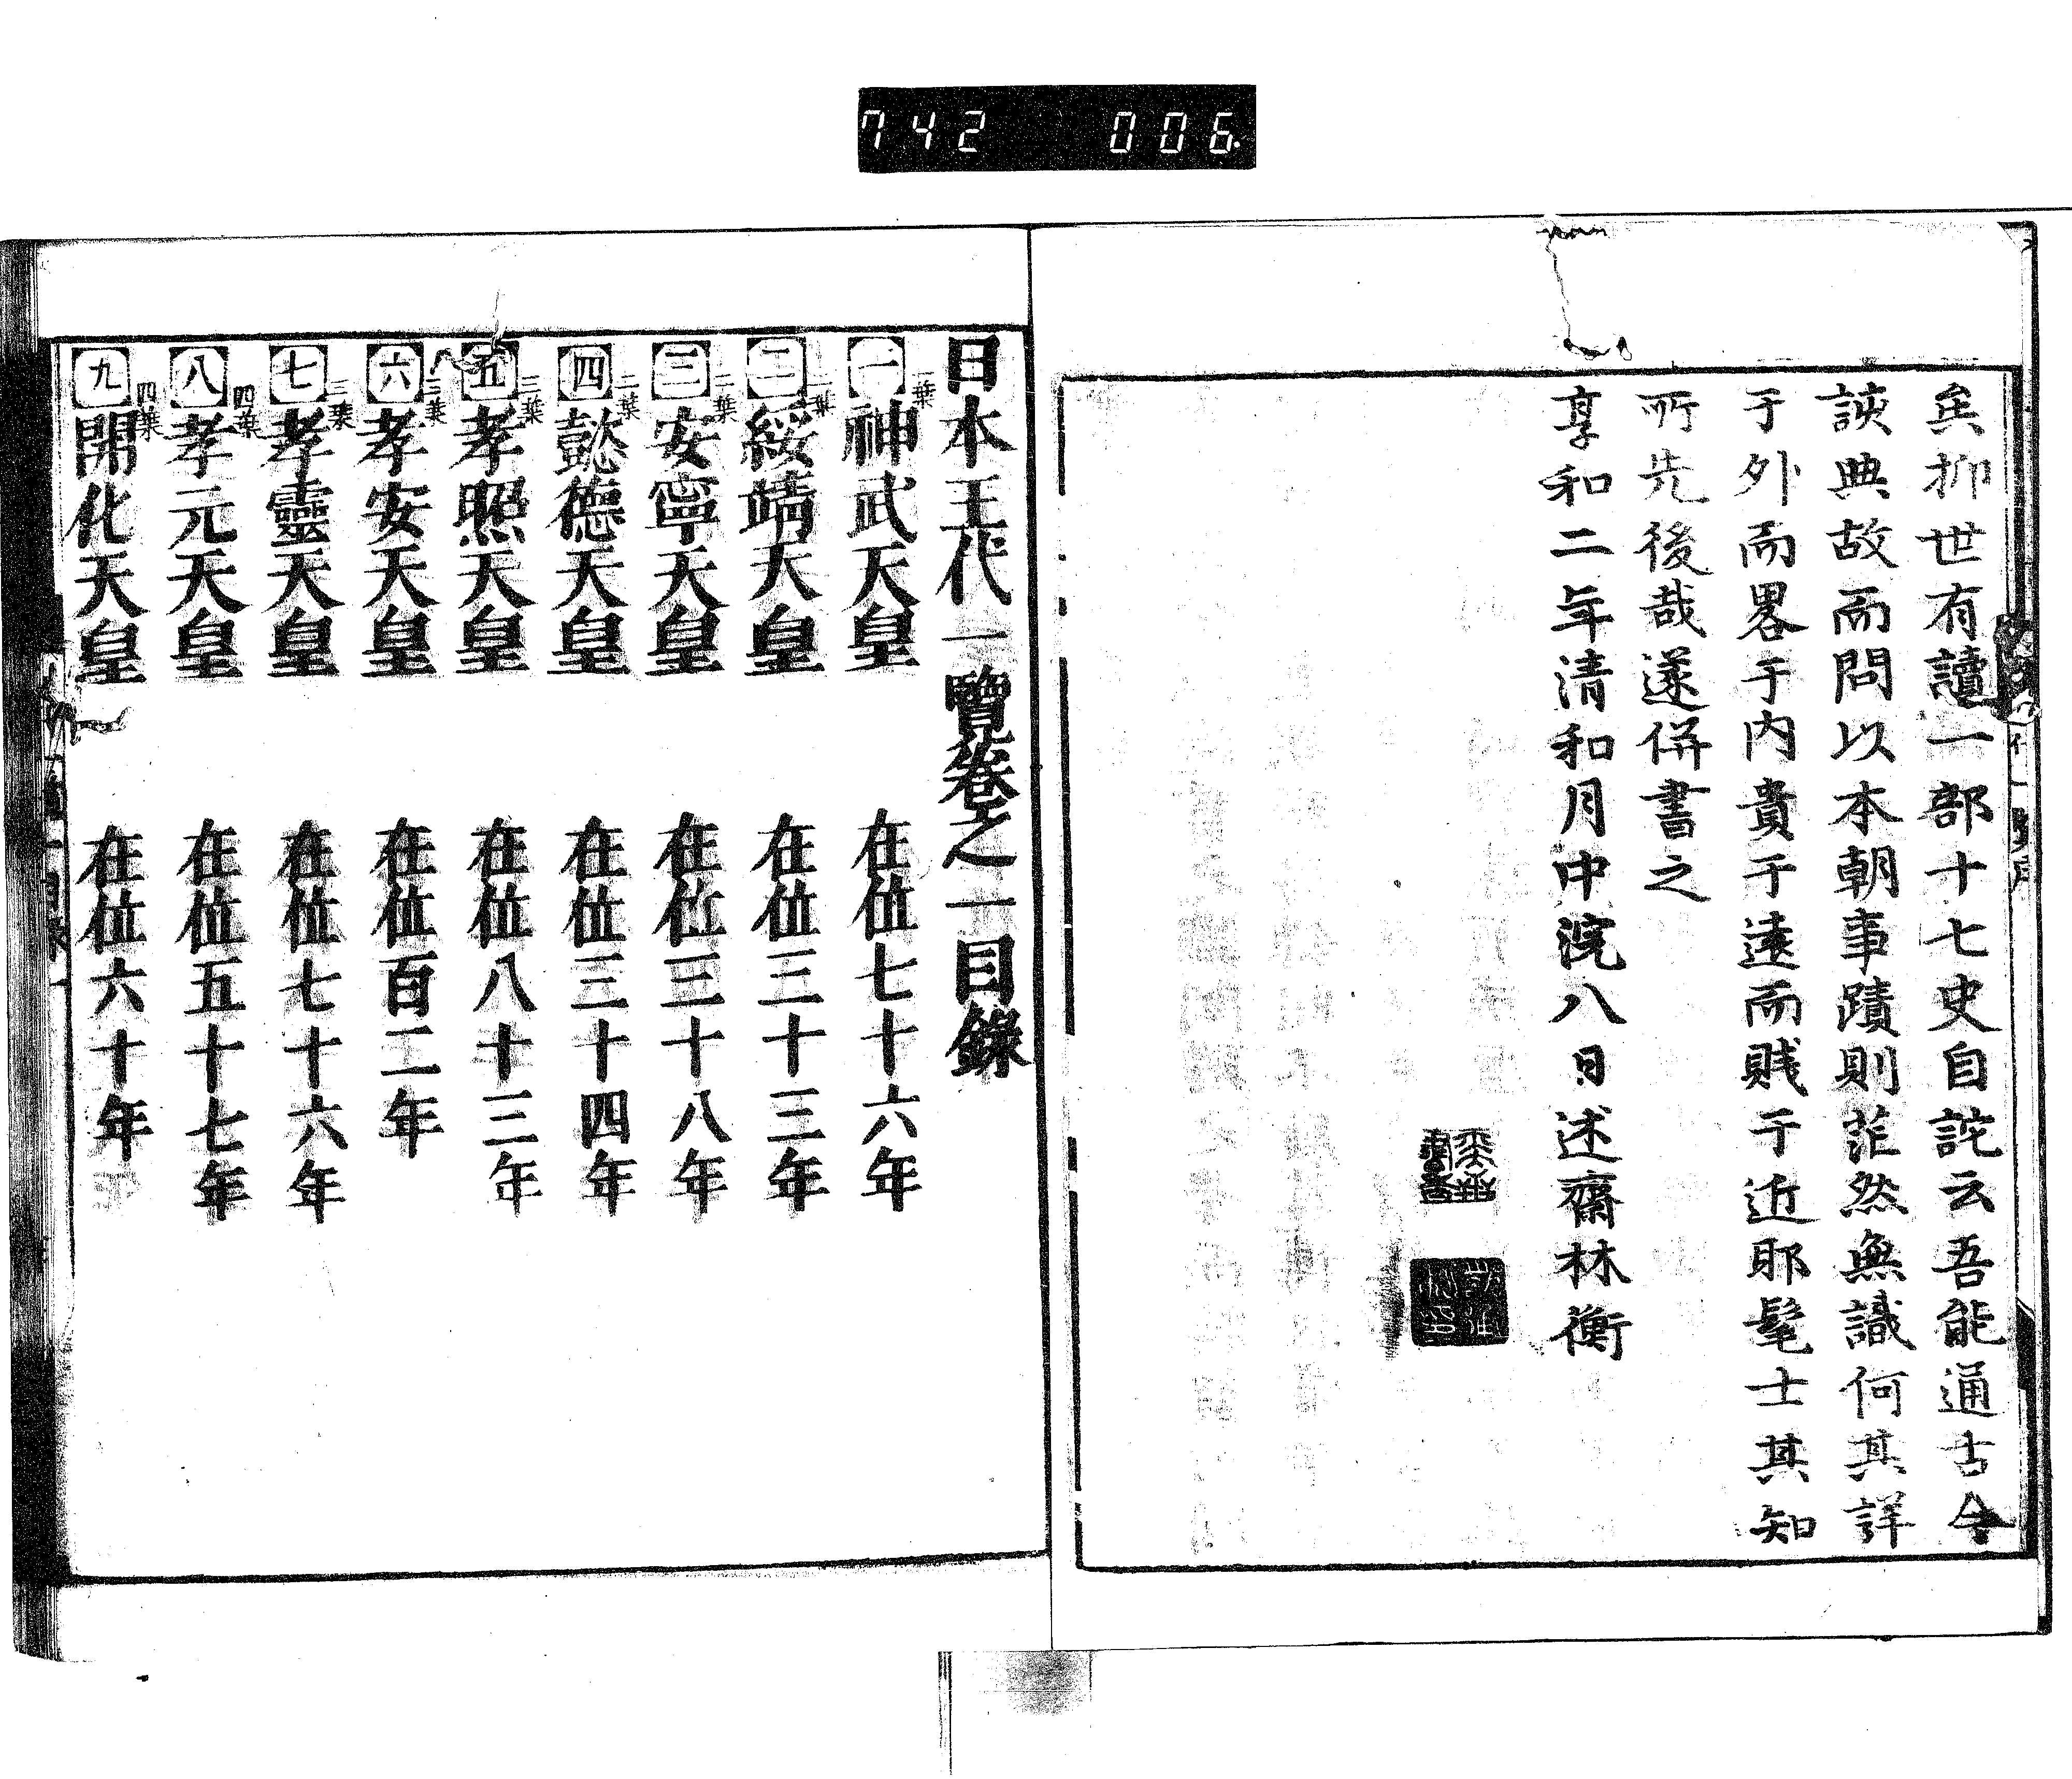 742 006
矣抑世有讀一部十七史自詫云吾能通古今
談典故而問以本朝事蹟則茫然無識何其詳
于外而畧于内貴于遠而賎于近耶髦士其知
所先後哉遂併書之
享和二年清和月中浣八日述齋林衡
日本王代一覽卷之一目錄
一 一葉 神武天皇 在位七十六年
二 二葉 綏靖天皇 在位三十三年
三 二葉 安寧天皇 在位三十八年
四 二葉 懿德天皇 在位三十四年
五 三葉 孝照天皇 在位八十三年
六 三葉 孝安天皇 在位百二年
七 三葉 孝靈天皇 在位七十六年
八 四葉 孝元天皇 在位五十七年
九 四葉 開化天皇 在位六十年